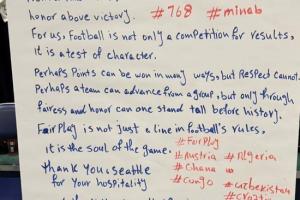 honor above victory. #768 #minab
For us, football is not only a competition for results,
it is a test of character.
Perhaps Points can be won in many ways, but Respect cannot.
Perhaps a team can advance from a group, but only through
fairess and honor can one stand tall before history.
Fair Play is not just a line in football's rules,
it is the soul of the game. #FairPlay
#Austria #Algeria
Thank you, seattle #Ghana
for Your hospitality #Congo #Uzbekistan